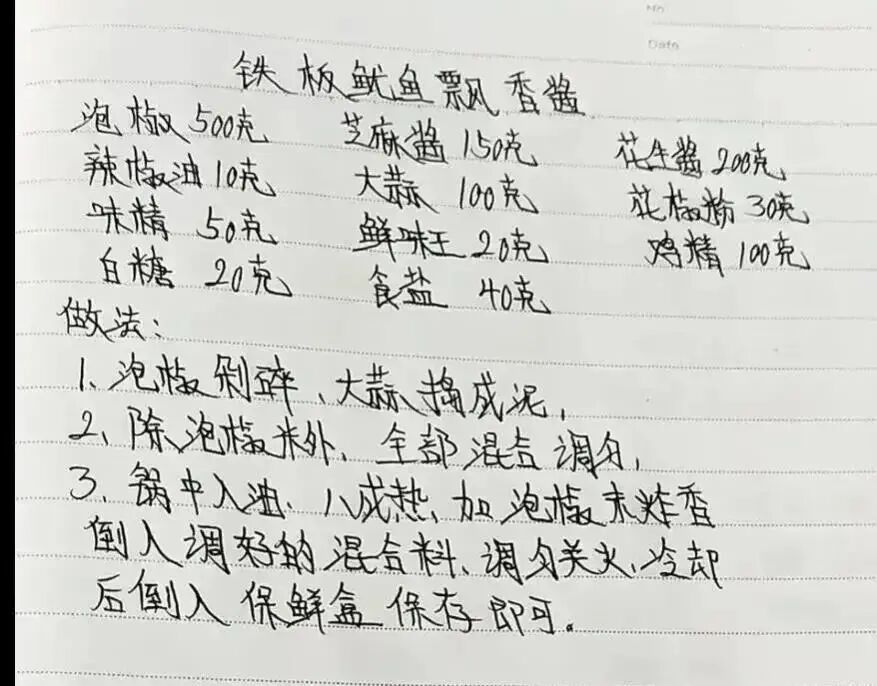 No
Date
铁板鱿鱼飘香酱
泡椒500克 芝麻酱150克 花生酱200克
辣椒油10克 大蒜100克 花椒粉30克
味精50克 鲜味王20克 鸡精100克
白糖20克 食盐40克
做法:
1、泡椒剁碎、大蒜捣成泥,
2、除泡椒米外、全部混合调匀,
3、锅中入油、八成热、加泡椒末炸香
倒入调好的混合料、调匀关火、冷却
后倒入保鲜盒保存即可。